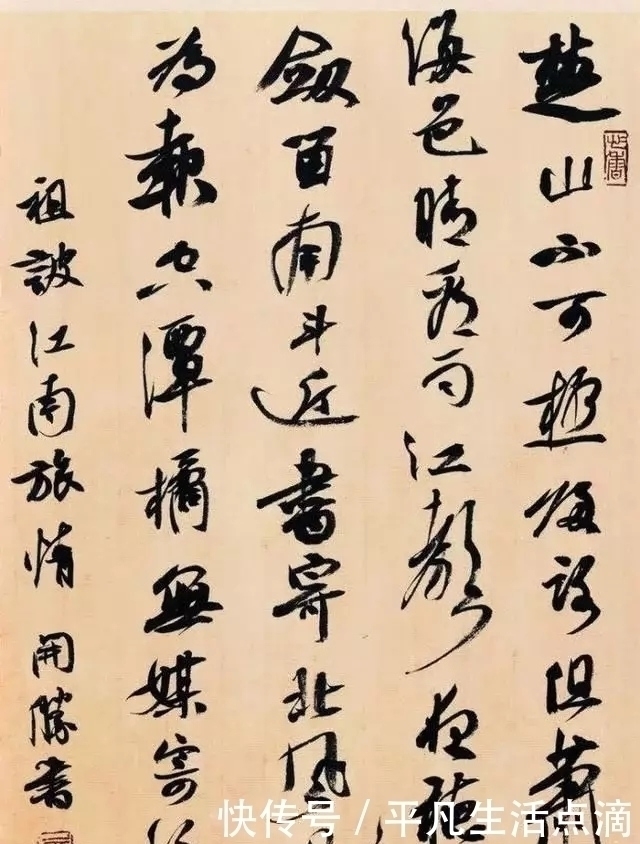 楚山不可極歸路但蕭
海色晴看雨江聲夜聽
劍留南斗近書寄北風
為報空潭橘無媒寄
祖詠江南旅情 開勝書
快传号 / 平凡生活点滴